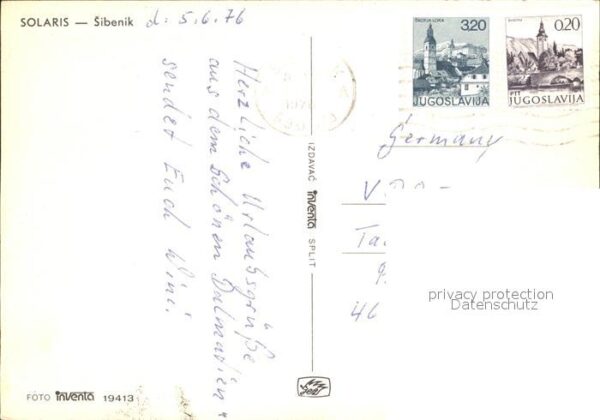 SOLARIS — Šibenik
d: 5.6.76
Herzliche Urlaubsgrüße
aus dem Schönen Dalmatien
sendet Euch Wini.
FOTO inventa 19413
IZDAVAČ inventa SPLIT
ŠKOFJA LOKA
3,20
JUGOSLAVIJA
0,20
PTT JUGOSLAVIJA
Germany
46
privacy protection
Datenschutz